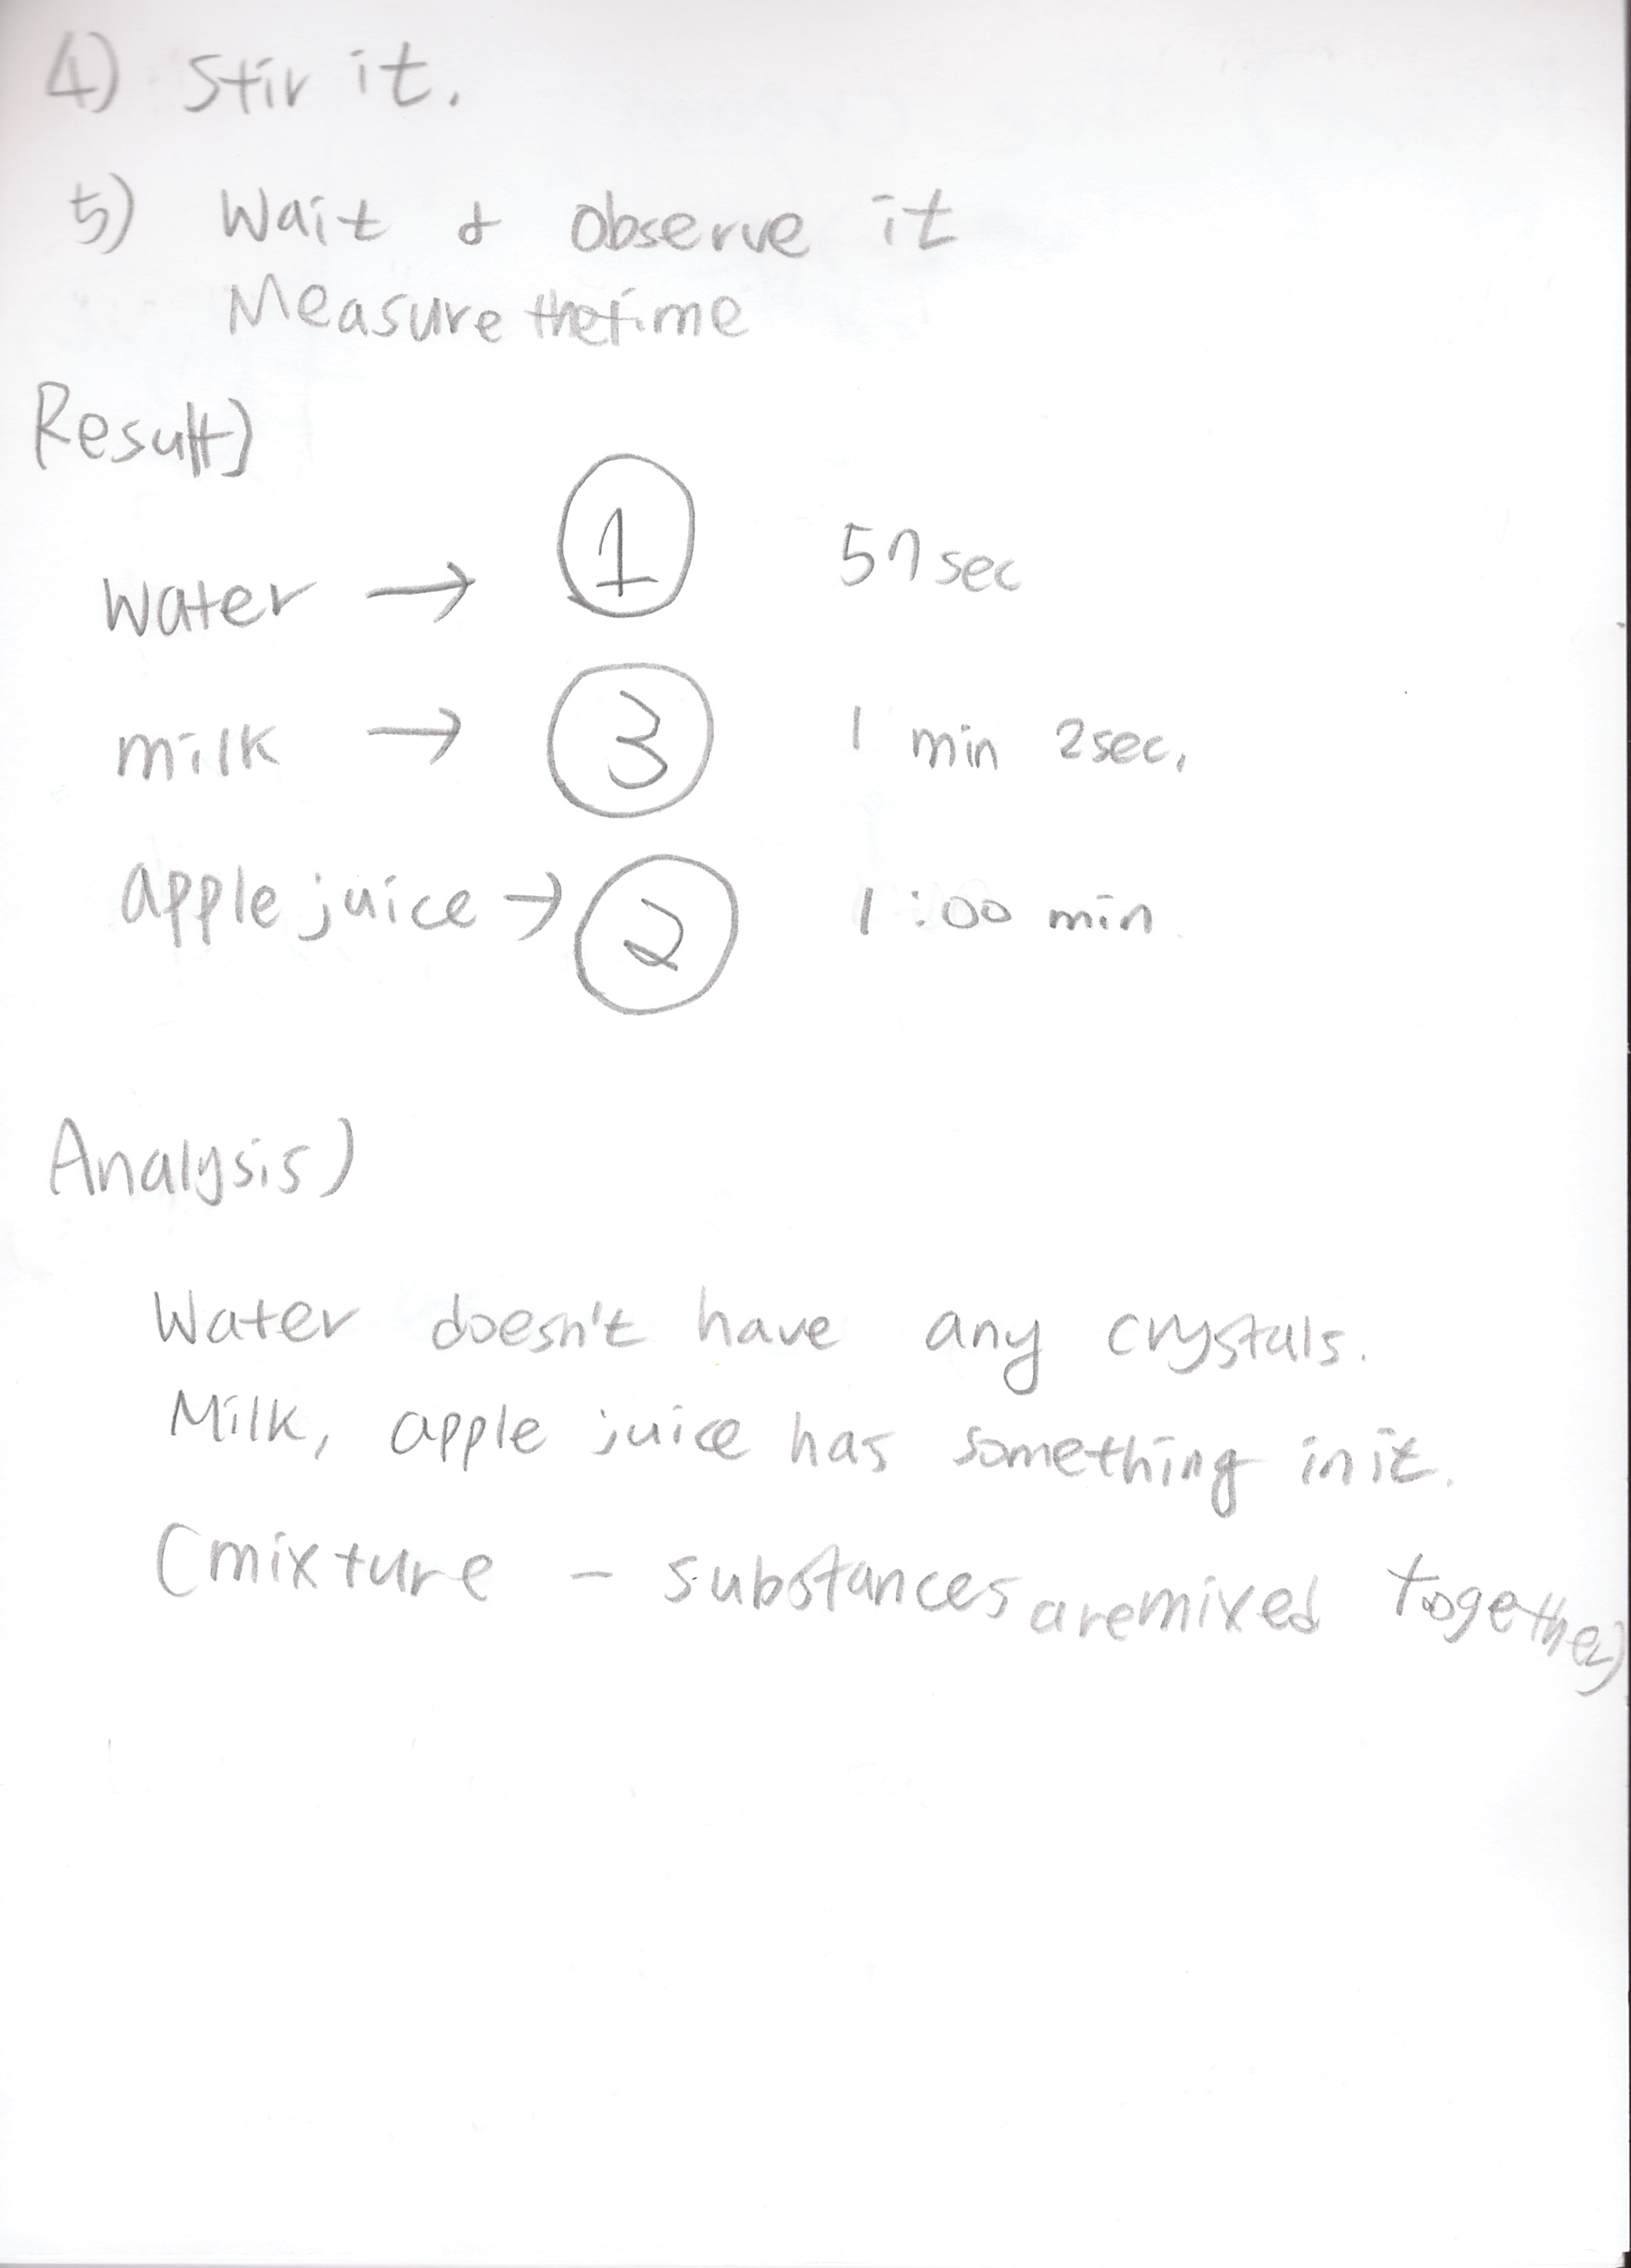 4) Stir it.
5) Wait & observe it
Measure the time
Result)
water → ① 57 sec
milk → ③ 1 min 2 sec.
apple juice → ② 1:00 min
Analysis)
Water doesn't have any crystals.
Milk, apple juice has something in it.
(mixture - substances are mixed together)